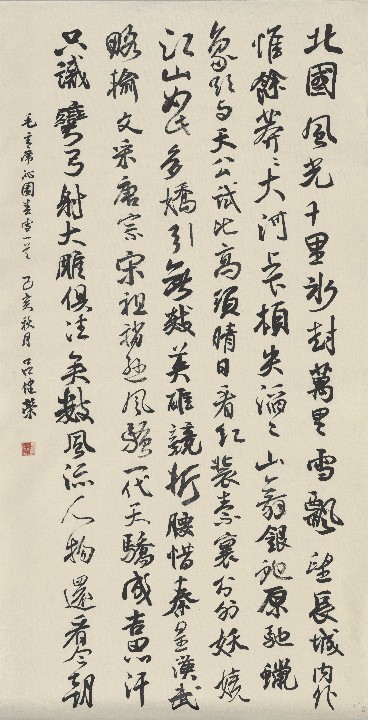 北國風光千里冰封萬里雪飄望長城內外
惟餘莽〻大河上下頓失滔〻山舞銀蛇原馳蠟
象欲與天公試比高須晴日看紅裝素裹分外妖嬈
江山如此多嬌引無數英雄競折腰惜秦皇漢武
略輸文采唐宗宋祖稍遜風騷一代天驕成吉思汗
只識彎弓射大雕俱往矣數風流人物還看今朝
毛主席沁園春雪一首 己亥秋月 吕健榮